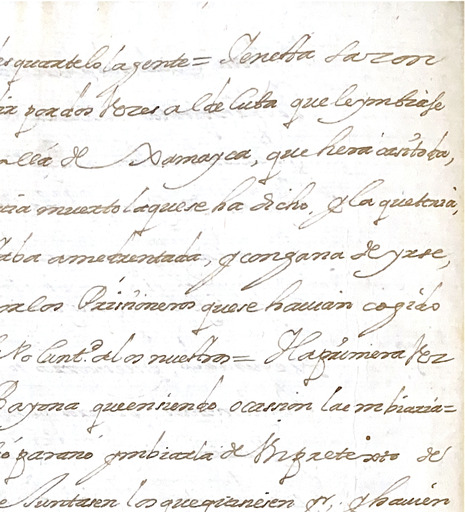 quartelo la gente = Y en esta sazon
por dos vezes a el de Cuba que le ymbiase
alla de Xamayca, que hera casi toda,
muerto la que se ha dicho, y la que tenia,
amedrentada, y con gana de yrse,
los Prisioneros que se hauian cogido
Volunt.d a los nuestros = Y la primera vez
Bayona que en siendo ocassion la embiaria =
para no ymbiarla de un pretexto de
Juntasen los que quisiesen yr, y hauien